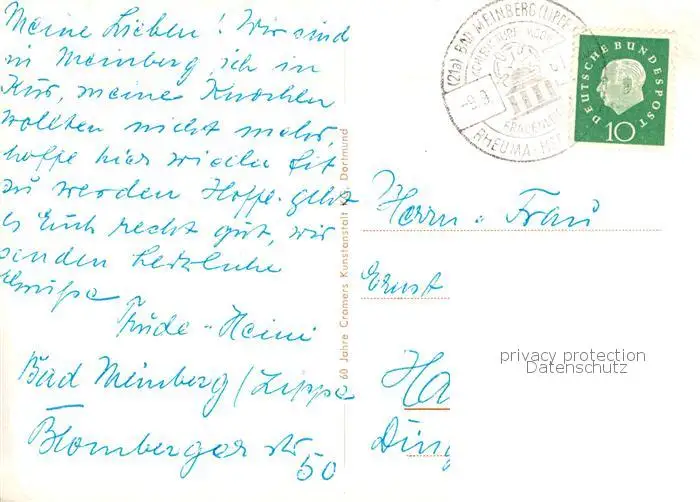 Meine Lieben! Wir sind
in Meinberg, ich in
Kur, meine Knochen
wollten nicht mehr,
hoffe hier wieder fit
zu werden Hoffe geht
es Euch recht gut, wir
senden herzliche
Grüße
Trude - Heini
Bad Meinberg/Lippe
Blomberger str
50
60 Jahre Cramers Kunstanstalt KG, Dortmund
(21a) BAD MEINBERG (LIPPE)
-9.9.
RHEUMA
DEUTSCHE BUNDESPOST
10
Herrn u Frau
Ernst
Ha
Ding
privacy protection
Datenschutz